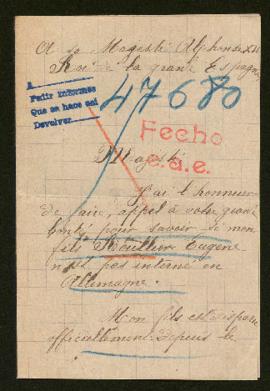 A sa Magesté Alphonse XIII
Roi de la grande Espagne
A
Pedir informes
Que se hace así
Devolver
47680
Fecho
e.a.e.
Magesté
J'ai l'honneur
de faire appel à votre grande
bonté pour savoir si mon
fils Eugène
n'est pas interné en
Allemagne.
Mon fils est disparu
officiellement depuis le